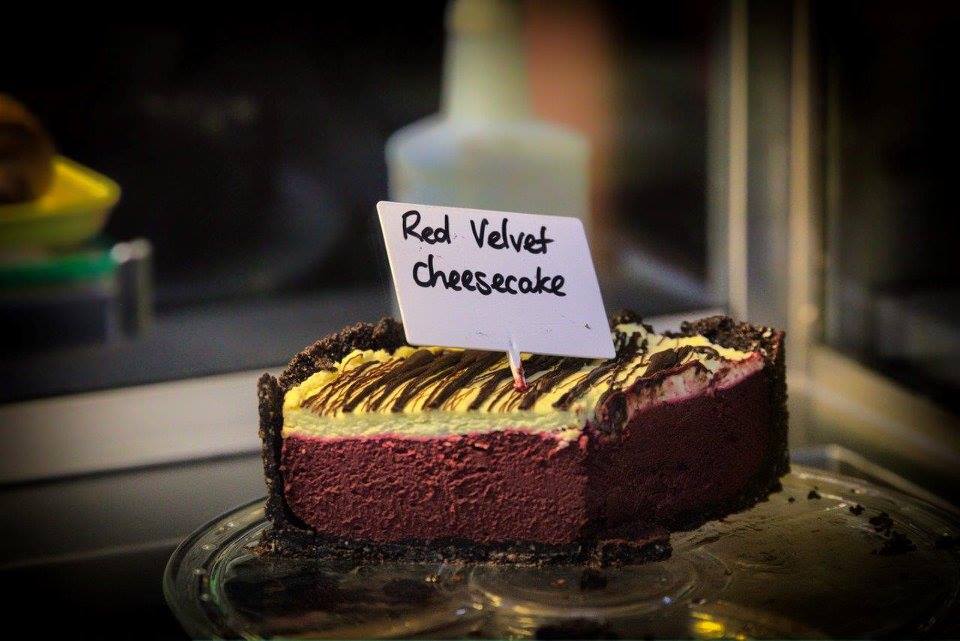 Red Velvet
Cheesecake